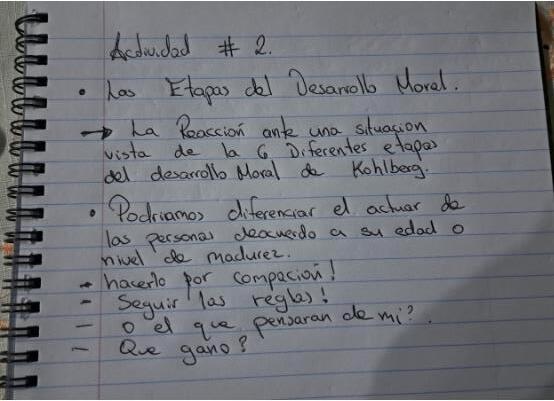 Actividad # 2.
• Las Etapas del Desarrollo Moral.
→ La Reaccion ante una situacion
vista de la 6 Diferentes etapas
del desarrollo Moral de Kohlberg.
• Podriamos diferenciar el actuar de
las personas deacuerdo a su edad o
nivel de madurez.
- hacerlo por compación!
- Seguir las reglas!
- o el que pensaran de mi?.
- Que gano?